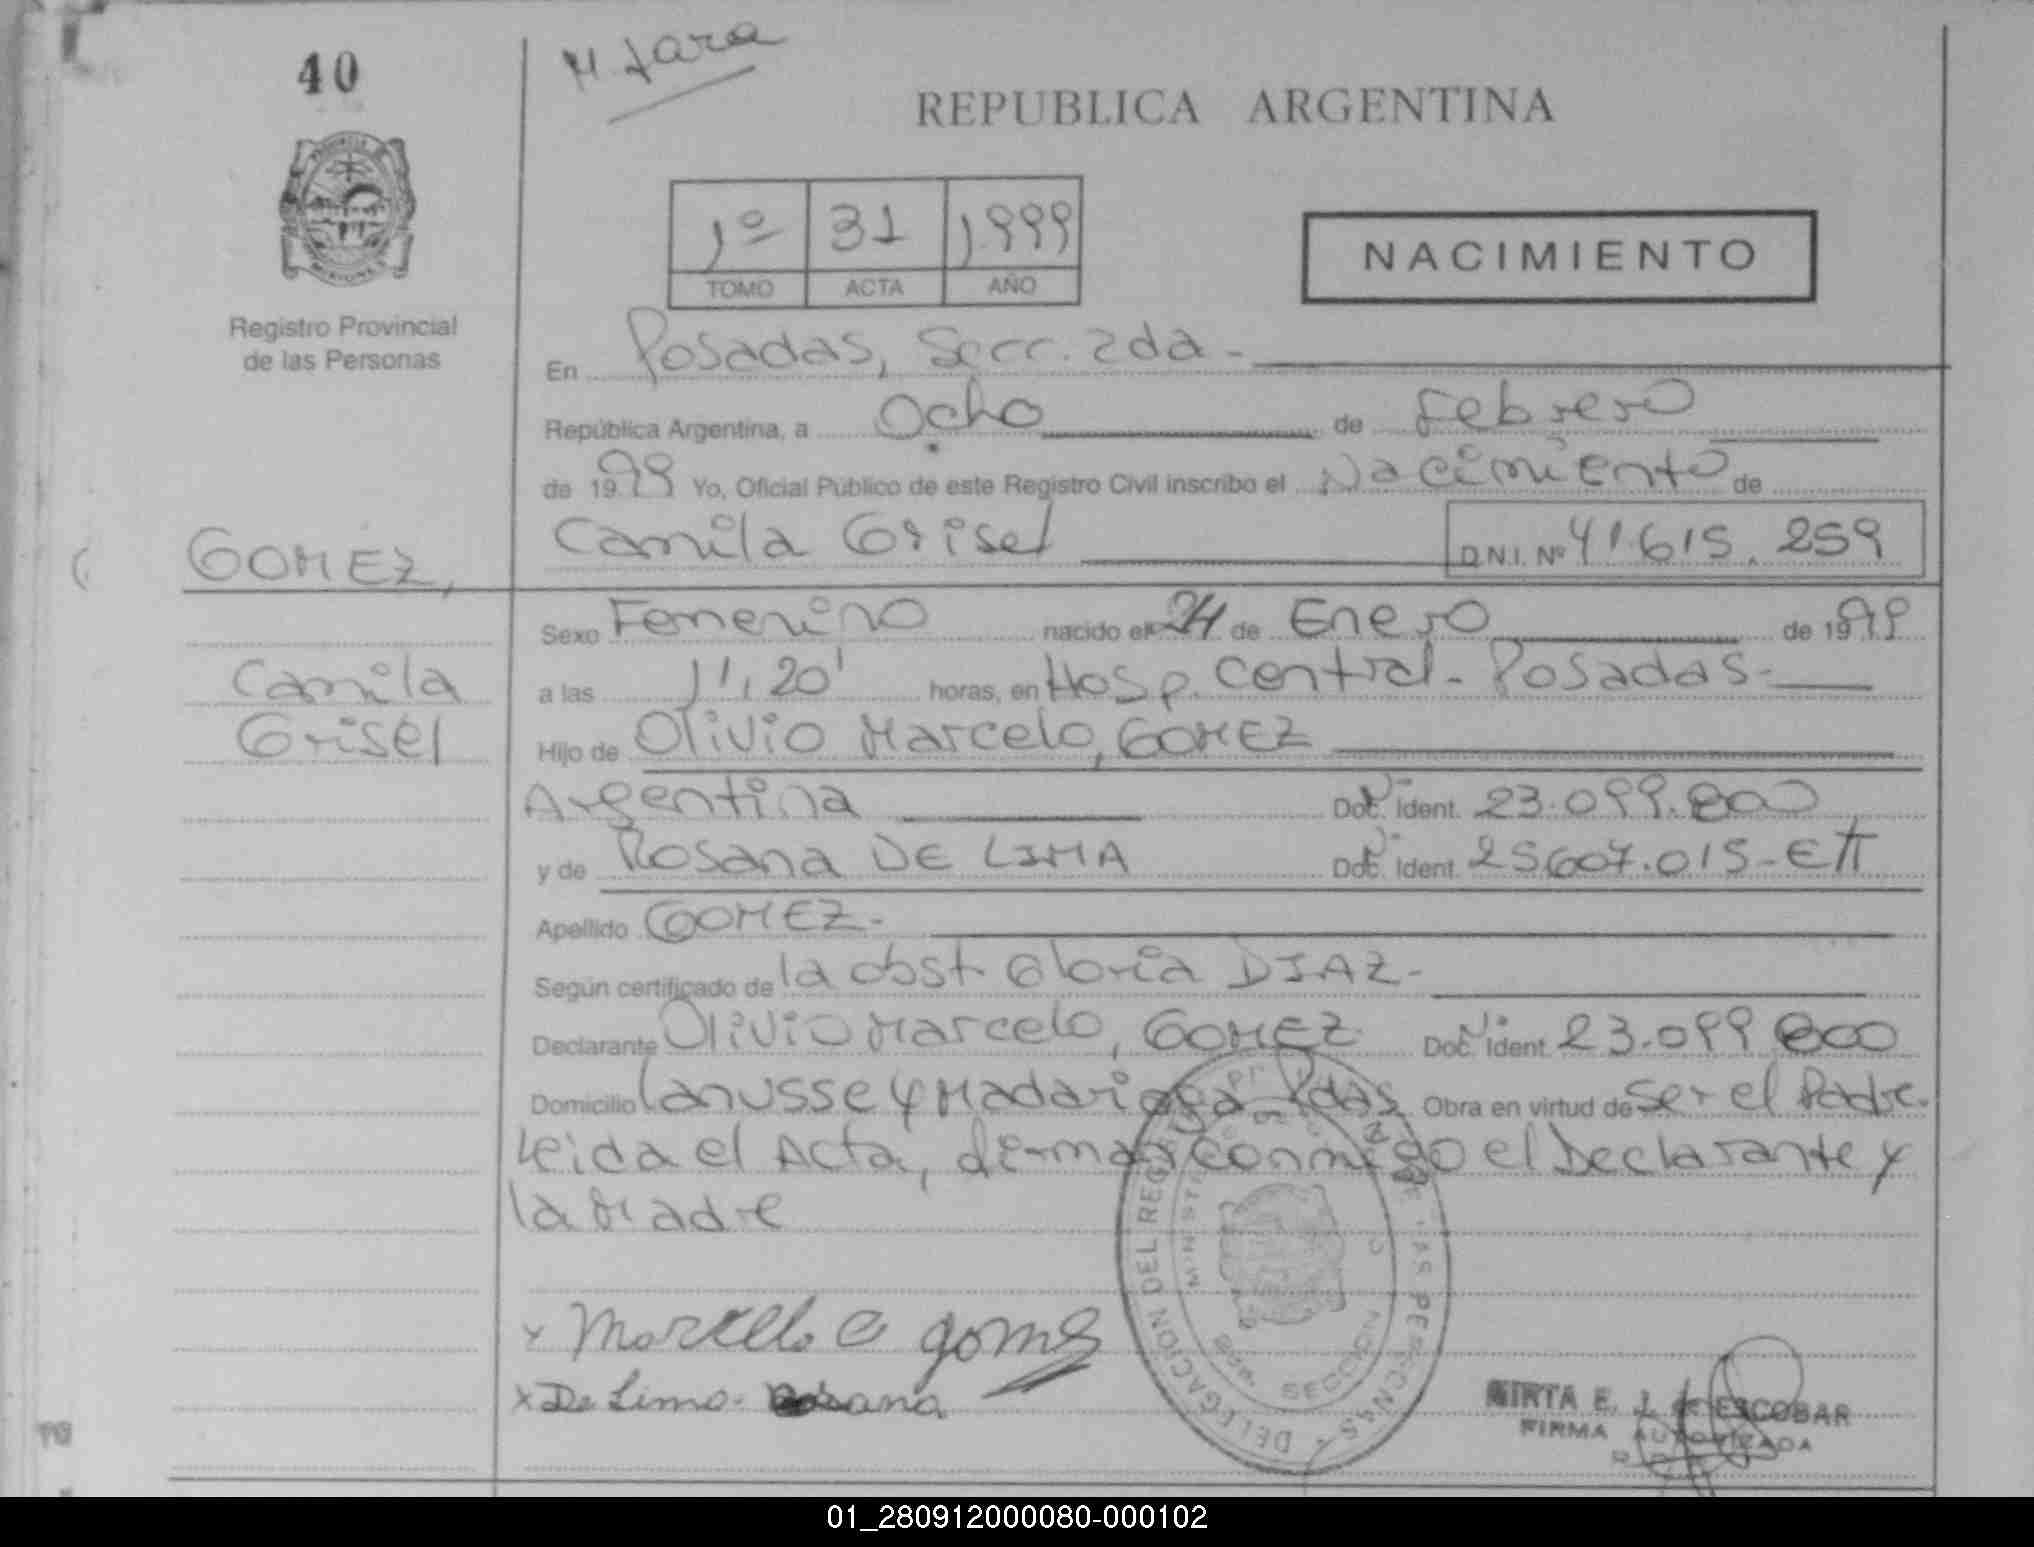 40
M. Jara
REPUBLICA ARGENTINA
1º 31 1999
TOMO ACTA AÑO
NACIMIENTO
Registro Provincial
de las Personas
En Posadas, Secc. 2da -
República Argentina, a Ocho de Febrero
de 1999 Yo, Oficial Público de este Registro Civil inscribo el Nacimiento de
GOMEZ, Camila Grisel D.N.I. Nº 41.615.259
Sexo Femenino nacido el 24 de Enero de 1999
Camila a las 11,20' horas, en Hosp. Central - Posadas -
Grisel Hijo de Olivio Marcelo, GOMEZ
Argentina Doc. Ident. 23.099.800
y de Rosana DE LIMA Doc. Ident. 25607.015-
Apellido GOMEZ -
Según certificado de la obst Gloria DIAZ -
Declarante Olivio Marcelo, GOMEZ Doc. Ident. 23.099.800
Domicilio Lanusse y Madariaga - Pdas Obra en virtud de Ser el Padre.
Leida el Acta, firman conmigo el Declarante y
la Madre
x Marcelo O gomez
x De Lima Rosana
DELEGACION DEL REGISTRO
SECCION
MIRTA E. J. de ESCOBAR
FIRMA AUTORIZADA
01_280912000080-000102